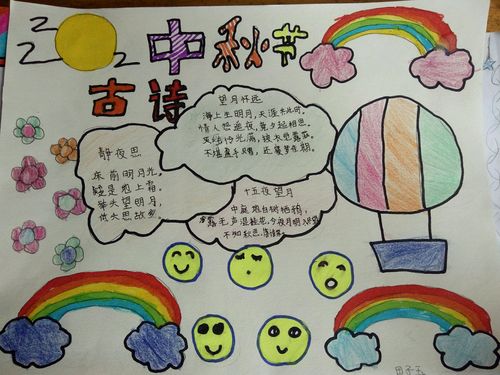 Z Z Z
中秋节
古诗
望月怀远
海上生明月,天涯共此时。
情人怨遥夜,竟夕起相思。
灭烛怜光满,披衣觉露滋。
不堪盈手赠,还寝梦佳期。
静夜思
床前明月光。
疑是地上霜。
举头望明月,
低头思故乡
十五夜望月
中庭地白树栖鸦,
冷露无声湿桂花。今夜月明人尽望
不知秋思落谁家